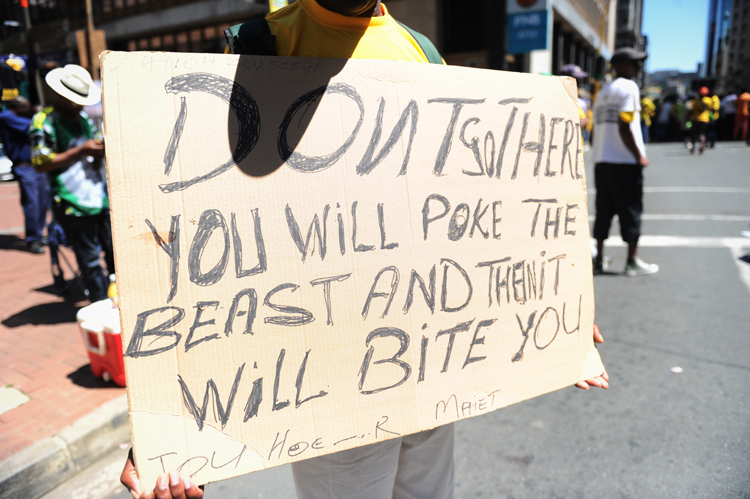 DON'T GO THERE
YOU WILL POKE THE
BEAST AND THEN IT
WILL BITE YOU
JOU HOE---.R MAIET
FNB